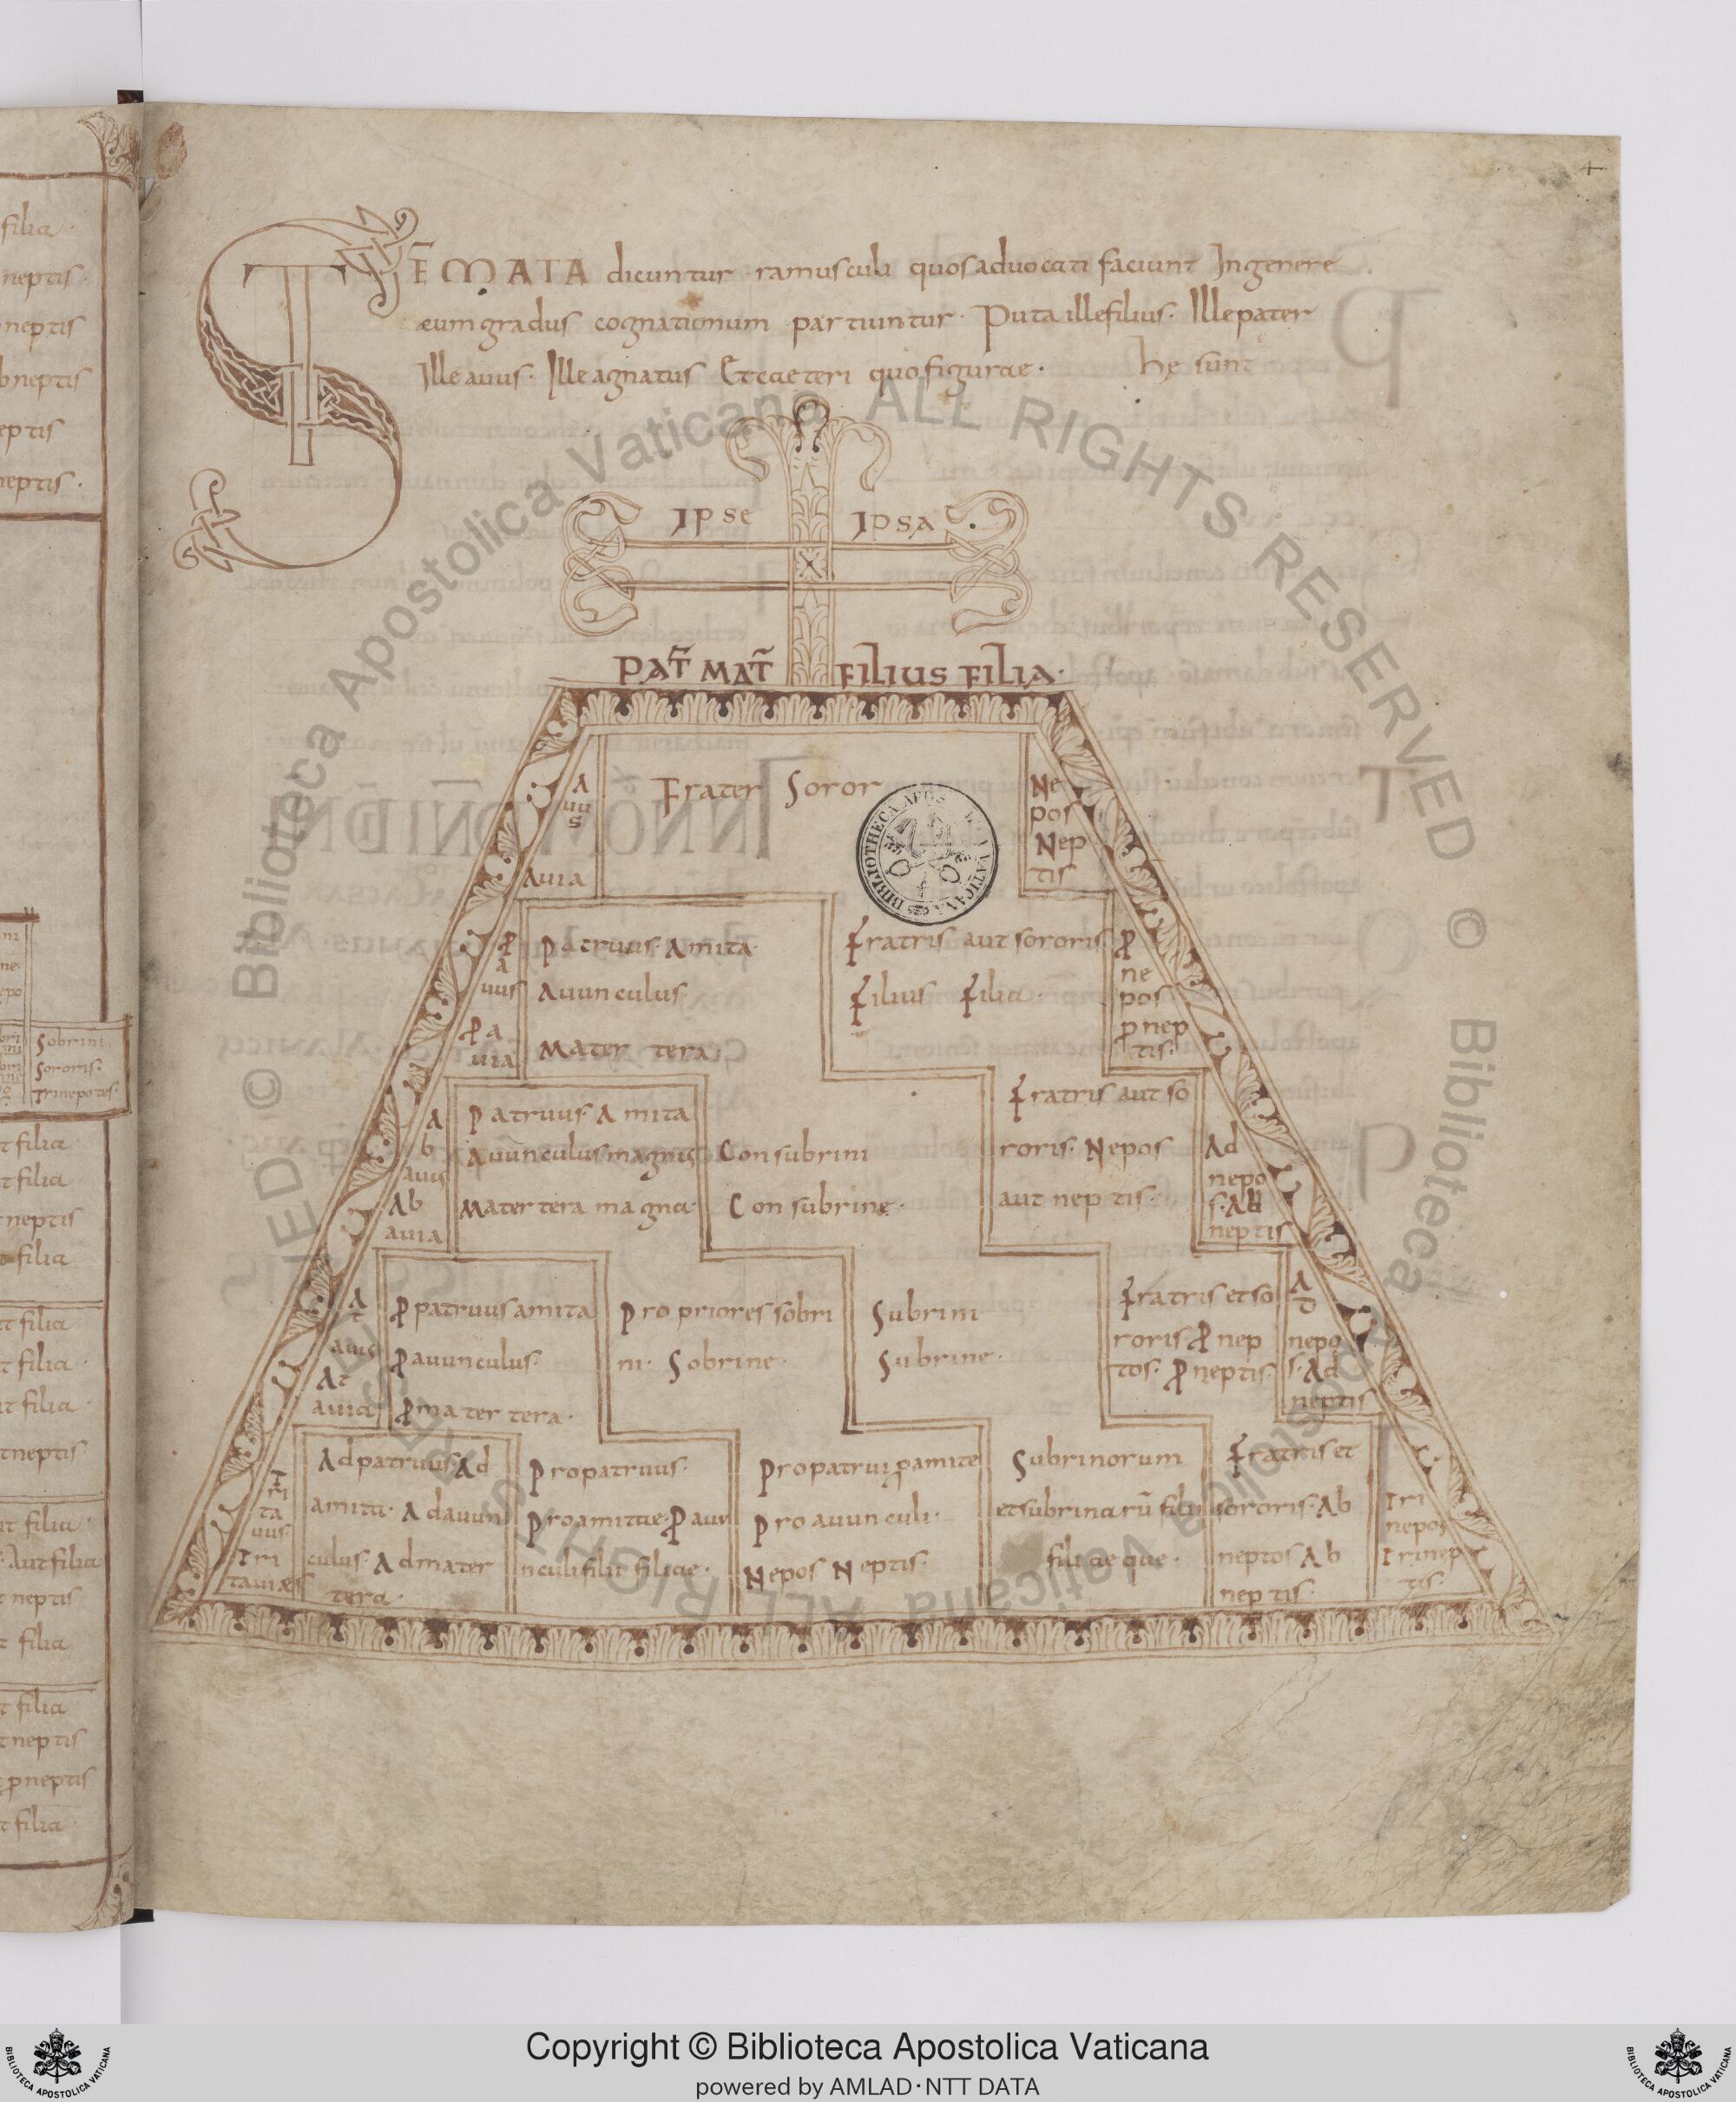 STEMATA dicuntur· ramusculi quos aduocati faciunt In genere
cum gradus cognationum partiuntur· Puta ille filius· Ille pater
Ille auus· Ille agnatus Et caeteri quo figurae· hę sunt
Ipse Ipsa
PAT̄ MAT̄ FILIUS FILIA·
A
uu
s
Auia
Frater Soror
Ne
pos
Nep
tis
ꝓ
a
uus
ꝓa
uia
Patruus· Amita·
Auunculus
Mater tera·
Fratris aut sororis
Filius Filia·
ꝓ
ne
pos
ꝓnep
tis·
A
b
auus
Ab
auia
Patruus· Amita
Auunculus magnus
Mater tera magna·
Consubrini
Consubrine·
Fratris aut so
roris· Nepos
aut neptis·
Ad
nepo
s· Ad
neptis
A
t
auus
At
auia
ꝓpatruus amita
ꝓauunculus·
ꝓmater tera·
Propriores sobri
ni· Sobrine·
Subrini
Subrine·
Fratris et so
roris ꝓnep
tos· ꝓneptis·
A
D
nepo
s· Ad
neptis
Tri
ta
uus
Tri
tauia
Adpatruus· Ad
amita· Adauun
culus· Admater
tera·
Propatruus·
Proamitae· ꝓauu
nculi filii filiae·
Propatrui ꝓamite
Proauunculi·
Nepos Neptis·
Subrinorum
et subrinarū filii
filiaeque·
Fratris et
sororis· Ab
neptos Ab
neptis·
Tri
nepos
Trinep
tis·
filia·
neptis·
neptis
bneptis
eptis
neptis·
Sobrini
Sororis·
Trinepotes·
t filia·
t filia
t neptis
t filia
t filia
t filia·
t filia·
t neptis
t filia·
· Aut filia
t neptis
t filia
t filia
t neptis
ꝓneptis
t filia·
Copyright © Biblioteca Apostolica Vaticana
powered by AMLAD·NTT DATA
BIBLIOTECA APOSTOLICA VATICANA
BIBLIOTECA APOSTOLICA VATICANA
© Biblioteca Apostolica Vaticana ALL RIGHTS RESERVED © Biblioteca Apostolica Vaticana ALL RIGHTS RESERVED